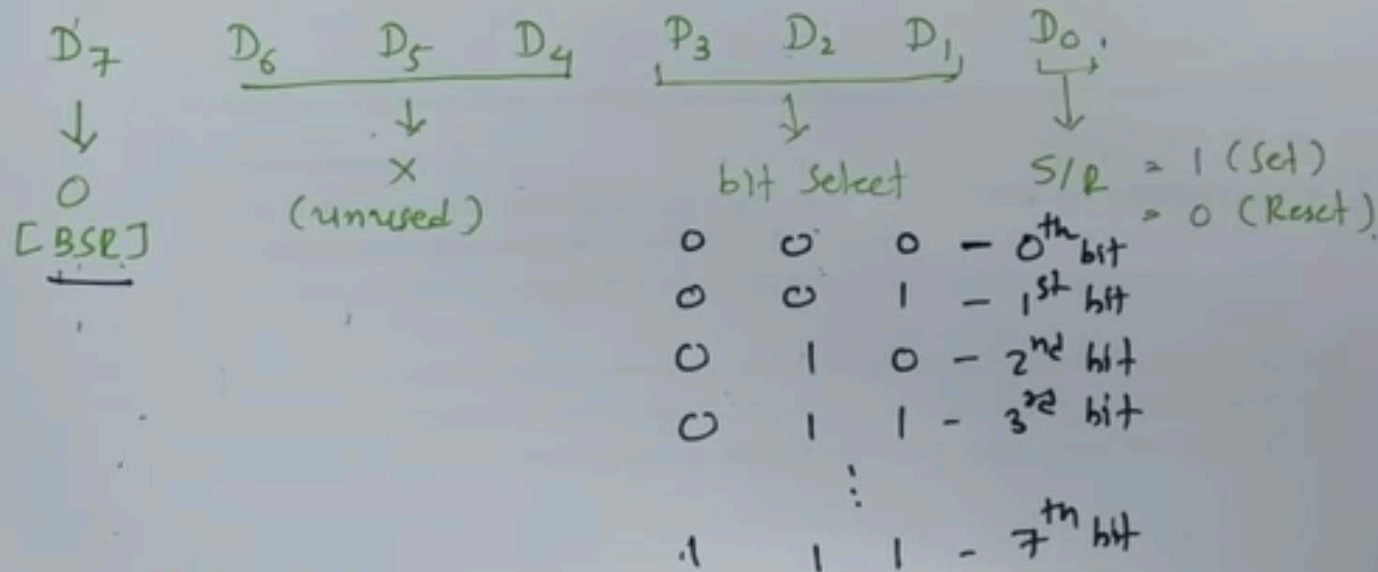 D7 D6 D5 D4 D3 D2 D1 D0
↓ ↓ ↓ ↓
0 X bit select S/R = 1 (Set)
[BSR] (unused) = 0 (Reset)
0 0 0 - 0th bit
0 0 1 - 1st bit
0 1 0 - 2nd bit
0 1 1 - 3rd bit
⋮
1 1 1 - 7th bit